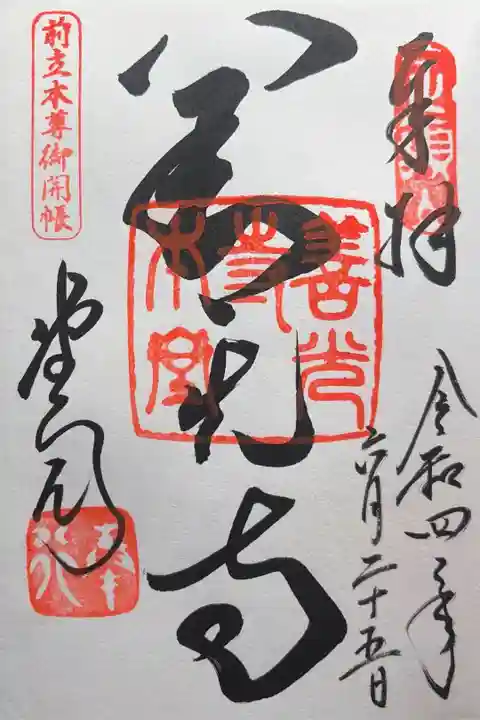 奉拝
令和四年
六月二十五日
善光寺
善光
寺
本堂
前立本尊御開帳